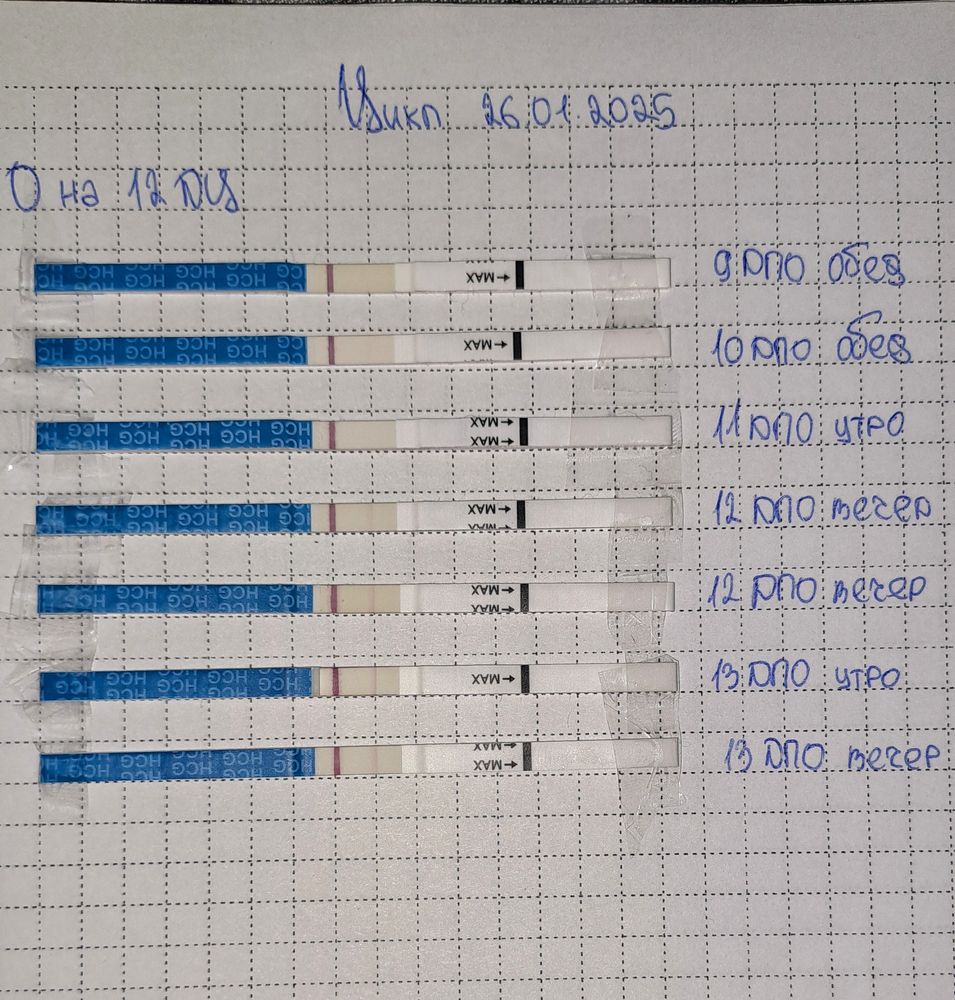 Цикл 26.01.2025
О на 12 ДЦ
HCG HCG HCG HCG HCG MAX 9 ДПО обед
HCG HCG HCG HCG HCG MAX 10 ДПО обед
HCG HCG HCG HCG HCG MAX MAX 11 ДПО утро
HCG HCG HCG HCG HCG MAX MAX 12 ДПО вечер
HCG HCG HCG HCG HCG MAX MAX 12 ДПО вечер
HCG HCG HCG HCG HCG MAX 13 ДПО утро
HCG HCG HCG HCG HCG MAX MAX 13 ДПО вечер